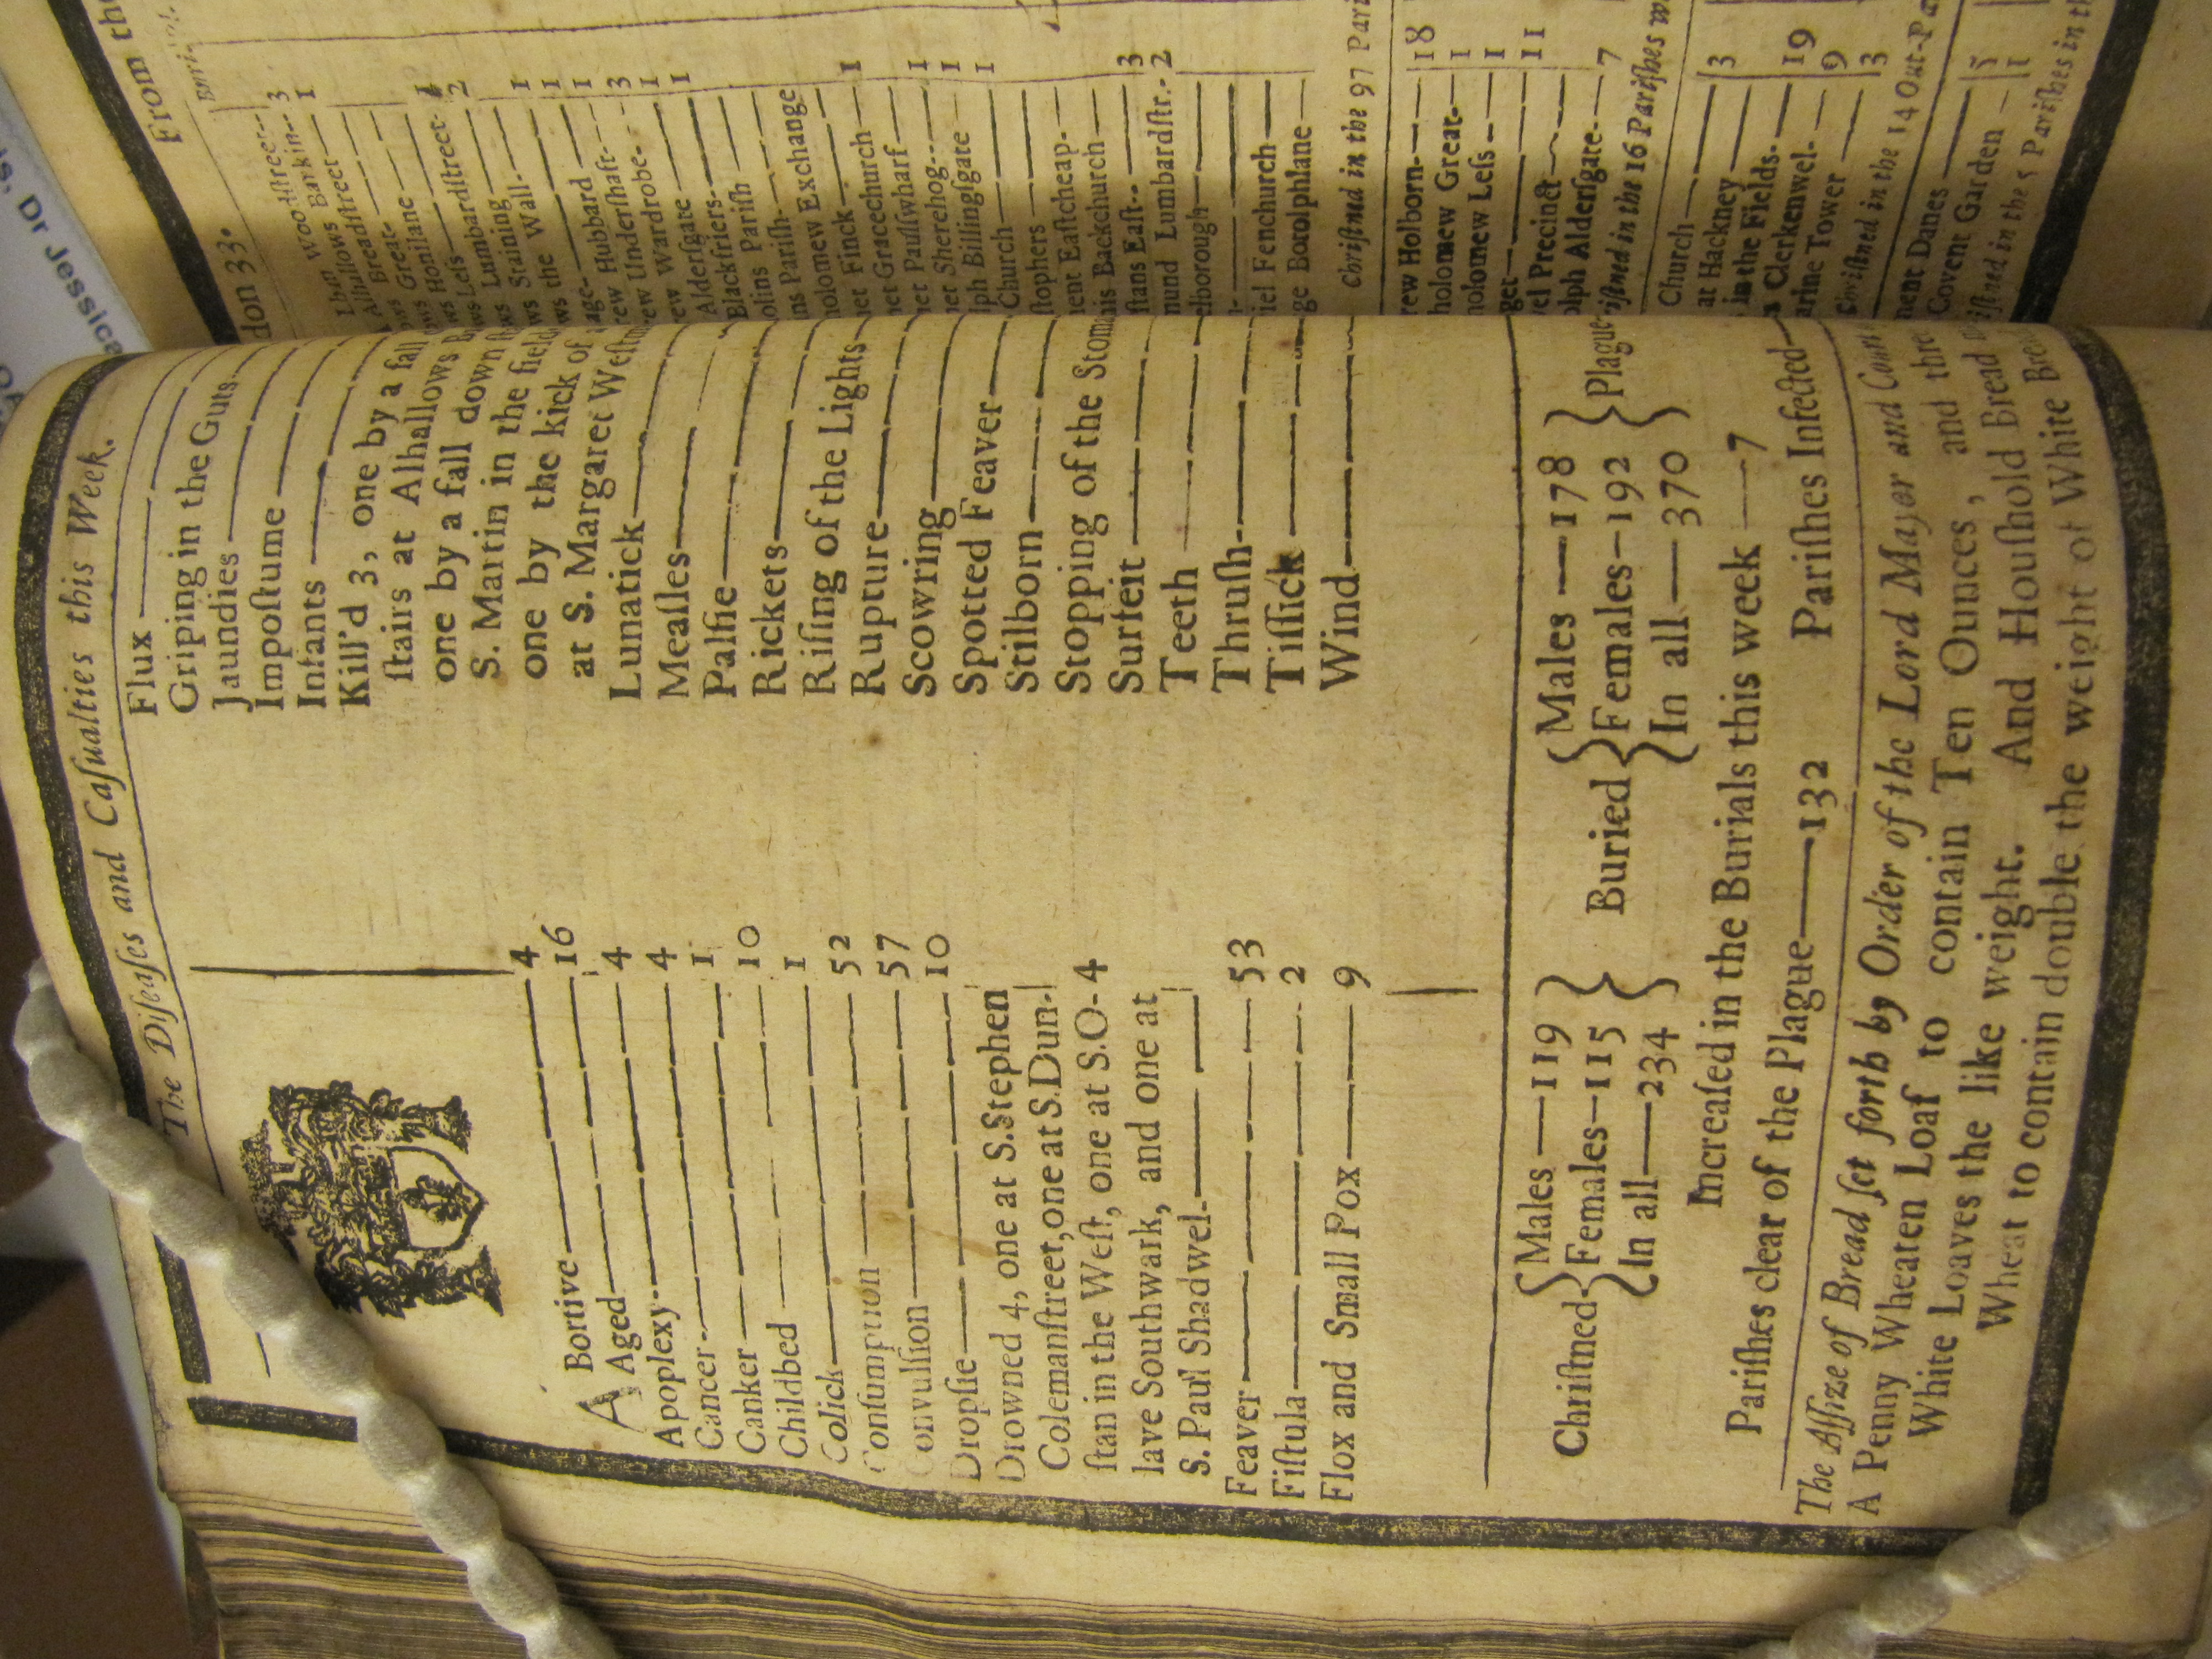 The Diſeaſes and Caſualties this Week.
ABortive 4
Aged 16
Apoplexy 4
Cancer 4
Canker 1
Childbed 10
Colick 1
Conſumption 52
Convulſion 57
Dropſie 10
Drowned 4, one at S. Stephen
Colemanſtreet, one at S. Dun-
ſtan in the Weſt, one at S. O- 4
lave Southwark, and one at
S. Paul Shadwel
Feaver 53
Fiſtula 2
Flox and Small Pox 9
Flux
Griping in the Guts
Jaundies
Impoſtume
Infants
Kill'd 3, one by a fall
ſtairs at Alhallows
one by a fall down
S. Martin in the field
one by the kick of
at S. Margaret Weſtm
Lunatick
Meaſles
Palſie
Rickets
Riſing of the Lights
Rupture
Scowring
Spotted Feaver
Stilborn
Stopping of the Stom
Surfeit
Teeth
Thruſh
Tiſſick
Wind
Chriſtned
Males 119
Females 115
In all 234
Buried
Males 178
Females 192
In all 370
Plague
Increaſed in the Burials this week 7
Pariſhes clear of the Plague 132 Pariſhes Infected
The Aſſize of Bread ſet forth by Order of the Lord Mayor and Court
A Penny Wheaten Loaf to contain Ten Ounces, and three
White Loaves the like weight. And Houſhold Bread
Wheat to contain double the weight of White Bread
From the
don 33.
Woodſtreet 3
Barkin 1
Alhallowſtreet
Breadſtreet
Great
Honilane 1
Leſs 2
Lumbardſtreet
Staining 1
the Wall 1
age 1
rew Hubbard 3
rew Underſhaft 1
rew Wardrobe 1
Alderſgate
Blackfriers
olins Pariſh
ns Pariſh
holomew Exchange
net Finck 1
net Gracechurch
net Paulſwharf 1
net Sherehog 1
lph Billingſgate 1
Church
ſtophers
ment Eaſtcheap
nis Backchurch
ſtans Eaſt 3
mund Lumbardſtr. 2
elborough
iel Fenchurch
ge Botolphlane
Chriſtned in the 97 Pari
rew Holborn 18
holomew Great 1
holomew Leſs 1
get 11
el Precinct
olph Alderſgate 7
iſtned in the 16 Pariſhes w
Church
at Hackney 3
in the Fields
s Clerkenwel 19
arine Tower 9
3
Chriſtned in the 14 Out-Pa
ment Danes
Covent Garden
iſtned in the 5 Pariſhes in th
s, Dr Jessica